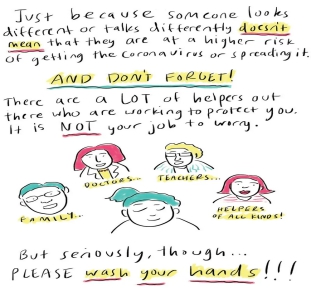 Just because someone looks
different or talks differently doesn't
mean that they are at a higher risk
of getting the coronavirus or spreading it.
AND DON'T FORGET!
There are a LOT of helpers out
there who are working to protect you.
It is NOT your job to worry.
DOCTORS...
TEACHERS...
FAMILY...
HELPERS
OF ALL KINDS!
But seriously, though...
PLEASE wash your hands!!!